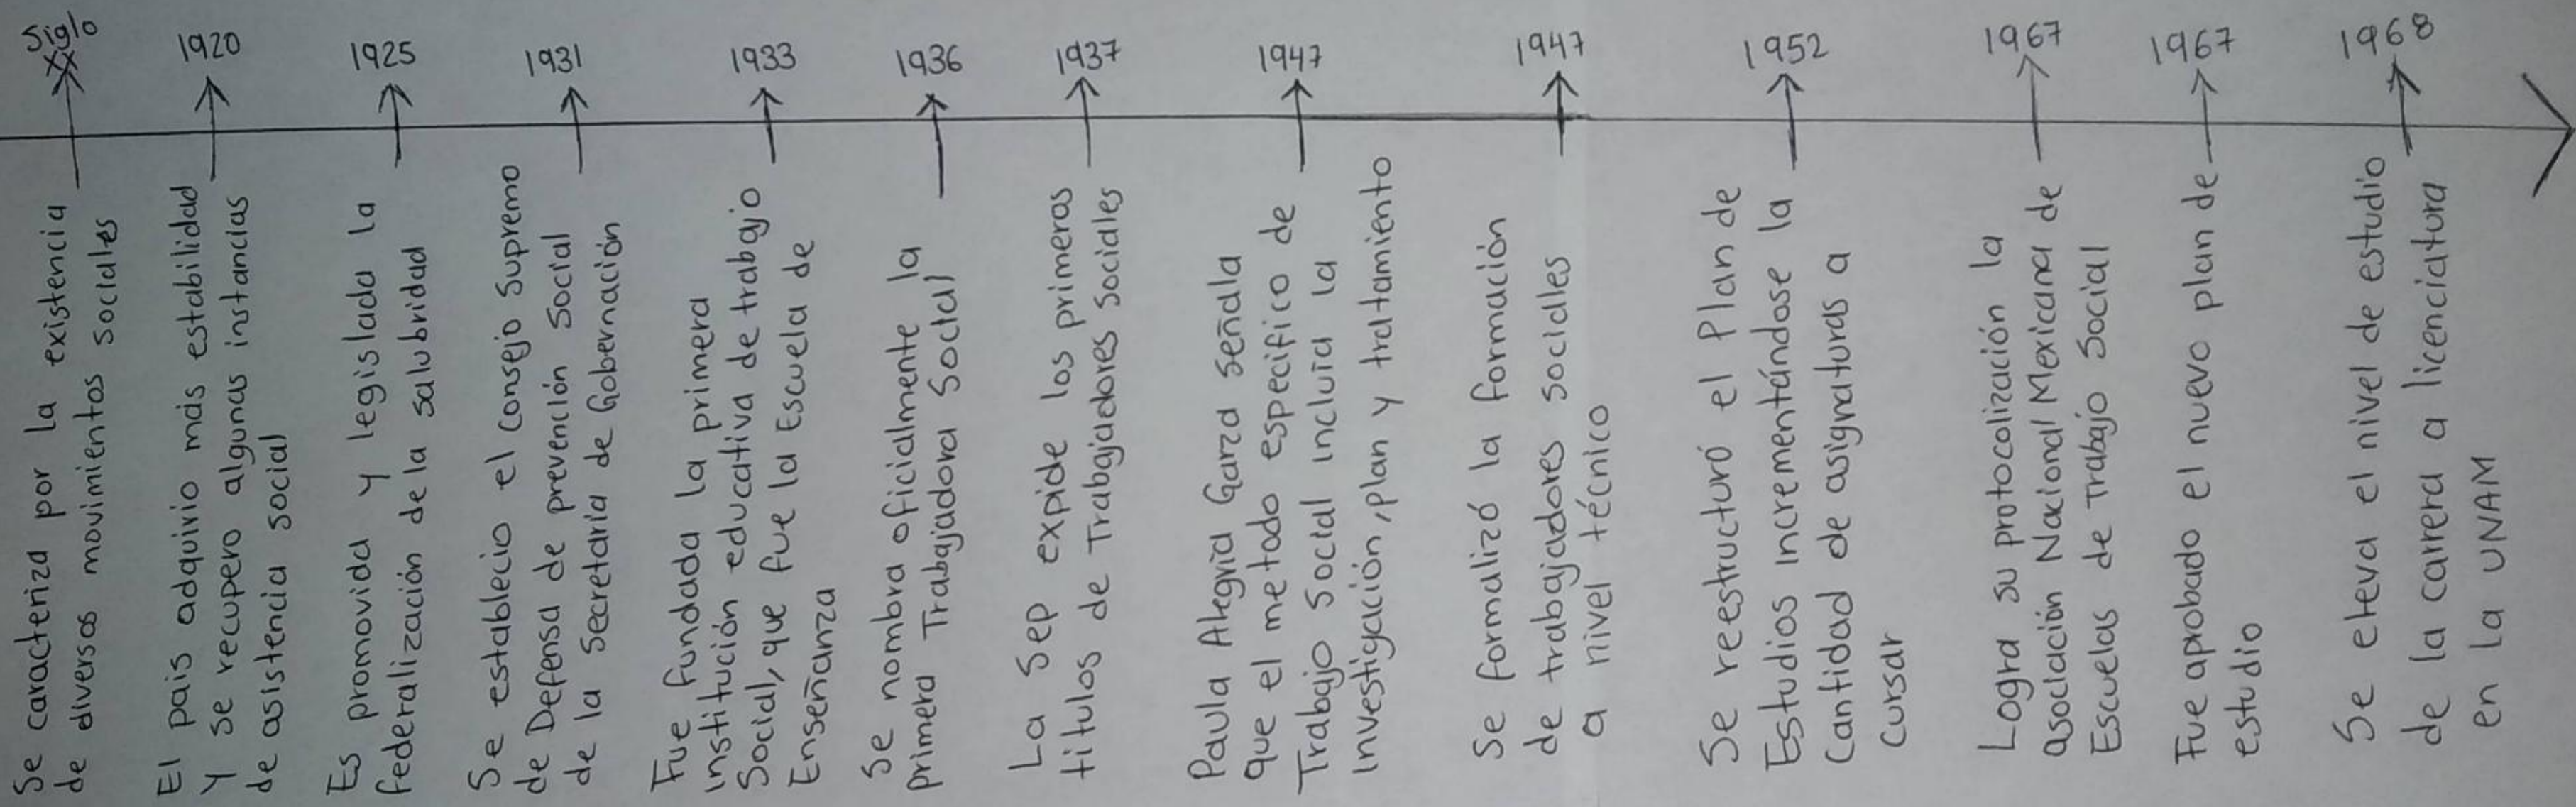 Siglo
XX
Se caracteriza por la existencia
de diversos movimientos sociales
1920
El pais adquirio más estabilidad
y se recupero algunas instancias
de asistencia social
1925
Es promovida y legislada la
federalización de la salubridad
1931
Se establecio el consejo supremo
de Defensa de prevención social
de la secretaría de Gobernación
1933
Fue fundada la primera
institución educativa de trabajo
Social, que fue la Escuela de
Enseñanza
1936
Se nombra oficialmente la
primera Trabajadora Social
1937
La Sep expide los primeros
titulos de Trabajadores sociales
1947
Paula Alegria Garza señala
que el metodo especifico de
Trabajo social incluia la
investigación, plan y tratamiento
1947
Se formalizó la formación
de trabajadores sociales
a nivel técnico
1952
Se reestructuró el Plan de
Estudios incrementándose la
Cantidad de asignaturas a
cursar
1967
Logra su protocolización la
asociación Nacional Mexicana de
Escuelas de Trabajo Social
1967
Fue aprobado el nuevo plan de
estudio
1968
Se eleva el nivel de estudio
de la carrera a licenciatura
en la UNAM